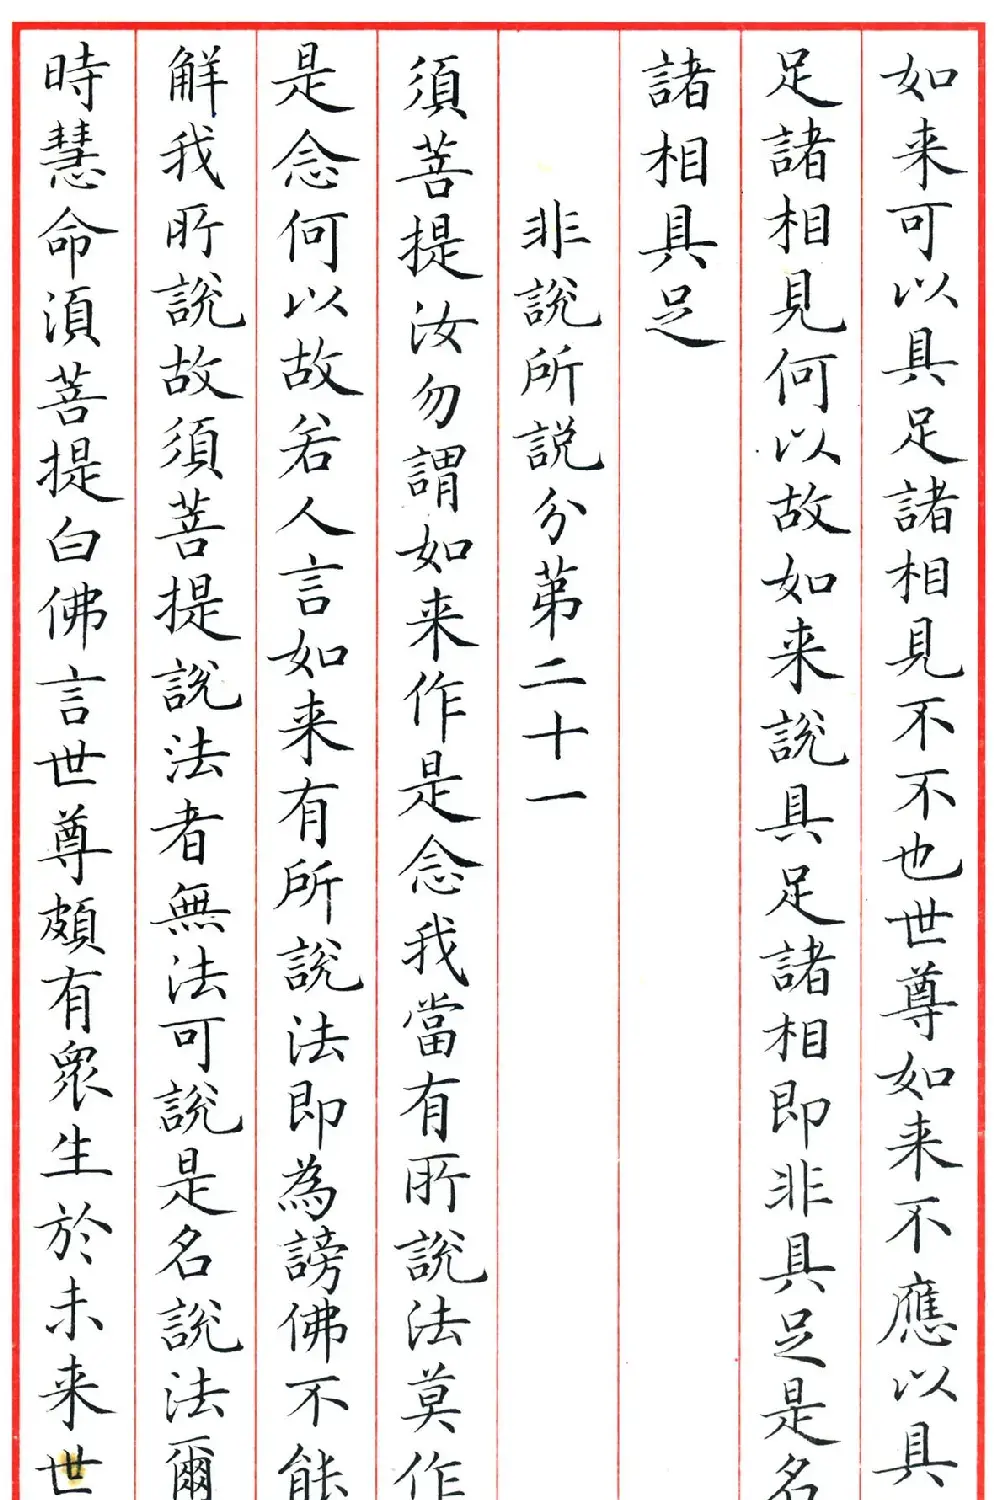 如来可以具足諸相見不不也世尊如来不應以具
足諸相見何以故如来説具足諸相即非具足是名
諸相具足
非説所説分第二十一
須菩提汝勿謂如来作是念我當有所説法莫作
是念何以故若人言如来有所説法即為謗佛不能
解我所説故須菩提説法者無法可説是名説法爾
時慧命須菩提白佛言世尊頗有眾生於未来世